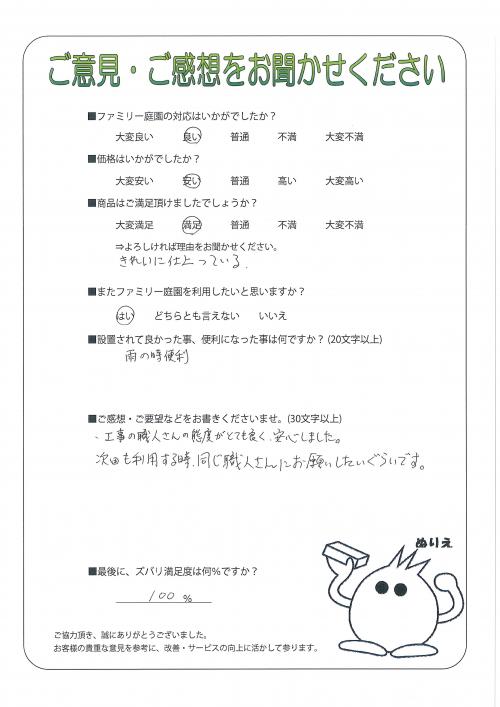 ご意見・ご感想をお聞かせください
■ファミリー庭園の対応はいかがでしたか？
大変良い 良い 普通 不満 大変不満
■価格はいかがでしたか？
大変安い 安い 普通 高い 大変高い
■商品はご満足頂けましたでしょうか？
大変満足 満足 普通 不満 大変不満
⇒よろしければ理由をお聞かせください。
きれいに仕上っている。
■またファミリー庭園を利用したいと思いますか？
はい どちらとも言えない いいえ
■設置されて良かった事、便利になった事は何ですか？(20文字以上)
雨の時便利
■ご感想・ご要望などをお書きくださいませ。(30文字以上)
・工事の職人さんの態度がとても良く、安心しました。
次回も利用する時、同じ職人さんにお願いしたいぐらいです。
ぬりえ
■最後に、ズバリ満足度は何％ですか？
100 %
ご協力頂き、誠にありがとうございました。
お客様の貴重な意見を参考に、改善・サービスの向上に活かして参ります。